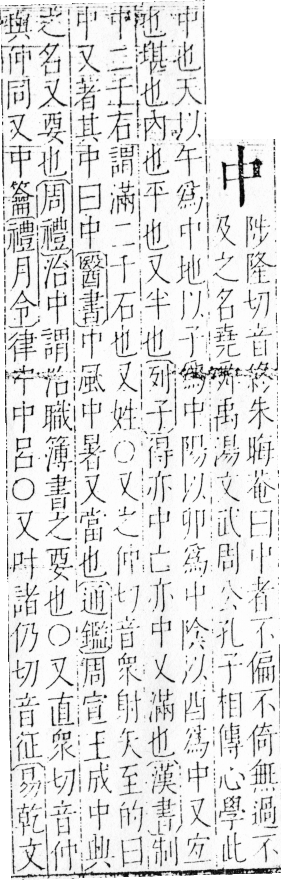 中
陟隆切音終朱晦菴曰中者不偏不倚無過不
及之名堯舜禹湯文武周公孔子相傳心學此
中也天以午為中地以子為中陽以卯為中陰以酉為中又宐
也堪也內也平也又半也列子得亦中亡亦中又滿也漢書制
中二千石謂滿二千石也又姓○又之仲切音衆射矢至的曰
中又著其中曰中醫書中風中暑又當也通鑑周宣王成中興
之名又要也周禮治中謂治職簿書之要也○又直衆切音仲
與仲同又中籥禮月令律中中呂○又叶諸仍切音征易乾文